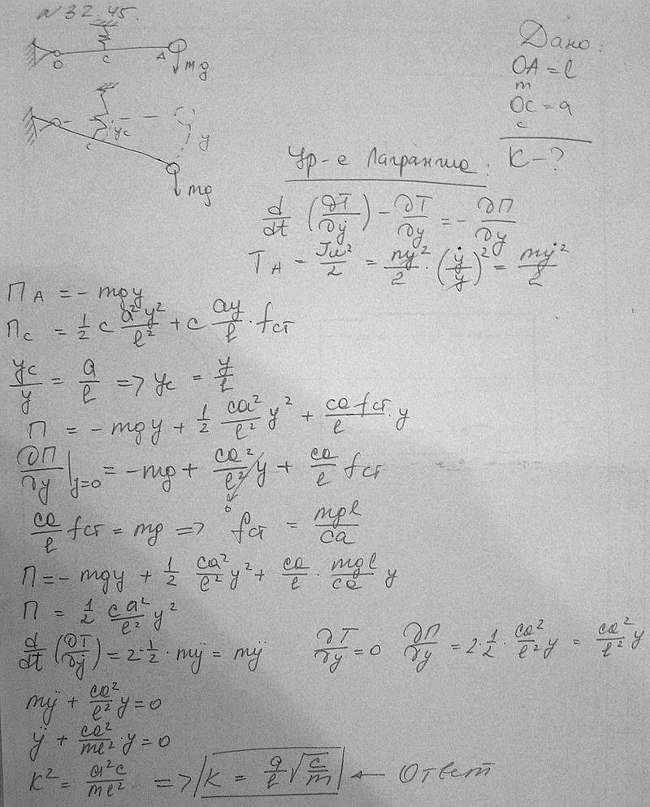 №32.45.
O C A mg
yc C y mg
Дано:
OA = l
m
OC = a
c
K - ?
Ур-е Лагранжа:
d/dt (∂T/∂ẏ) - ∂T/∂y = - ∂П/∂y
T_A = Jω²/2 = my²/2 · (ẏ/y)² = mẏ²/2
П_A = - mgy
П_C = 1/2 c a²y²/l² + c ay/l · fст
yc/y = a/l => yc = y/l
П = - mgy + 1/2 ca²/l² y² + ca fст/l · y
∂П/∂y |y=0 = - mg + ca²/l² y + ca/l fст
0
ca/l fст = mg => fст = mgl/ca
П = - mgy + 1/2 ca²/l² y² + ca/l · mgl/ca y
П = 1/2 ca²/l² y²
d/dt (∂T/∂ẏ) = 2·1/2 · mÿ = mÿ ∂T/∂y = 0 ∂П/∂y = 2·1/2 · ca²/l² y = ca²/l² y
mÿ + ca²/l² y = 0
ÿ + ca²/ml² · y = 0
K² = a²c/ml² => K = a/l √c/m ← Ответ